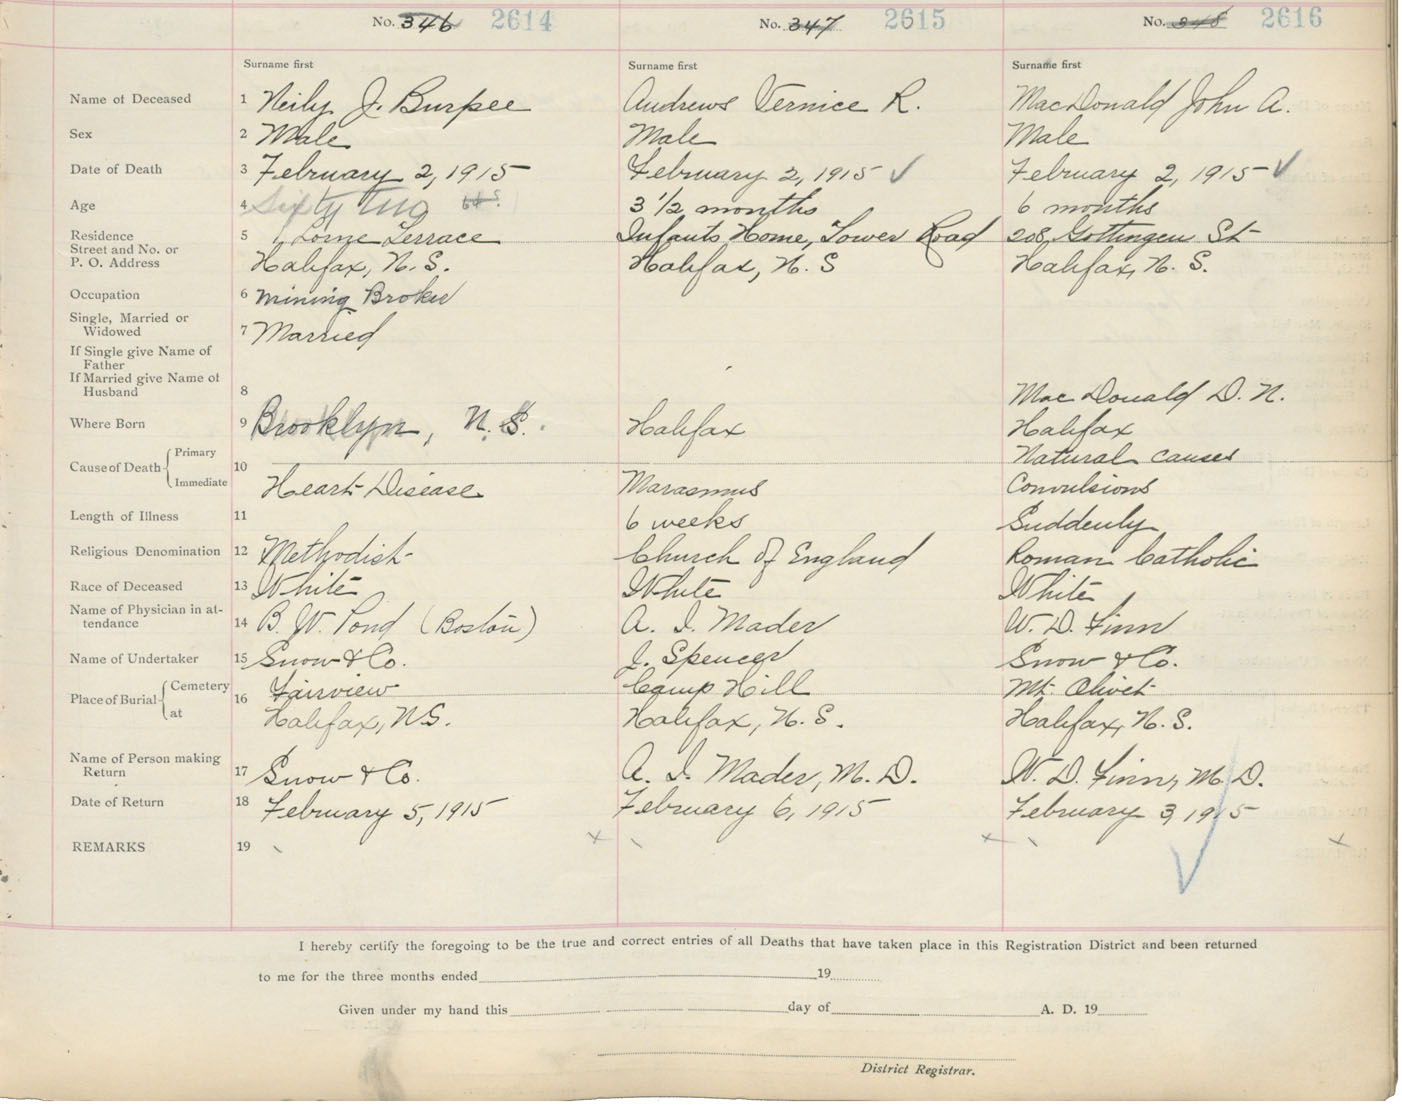 No. 346 2614 No. 347 2615 No. 348 2616
Surname first Surname first Surname first
Name of Deceased 1 Neily J. Burpee Andrews Vernice R. MacDonald John A.
Sex 2 Male Male Male
Date of Death 3 February 2, 1915 February 2, 1915 ✓ February 2, 1915 ✓
Age 4 Sixty two 3 1/2 months 6 months
Residence 5 1 Lorne Terrace Infants Home, Tower Road 208 Gottingen St
Street and No. or
P. O. Address Halifax, N. S. Halifax, N. S Halifax, N. S.
Occupation 6 Mining Broker
Single, Married or
Widowed 7 Married
If Single give Name of
Father
If Married give Name of
Husband 8 MacDonald D. N.
Where Born 9 Brooklyn, N. S. Halifax Halifax
Cause of Death Primary 10 Natural causes
Immediate Heart Disease Marasmus Convulsions
Length of Illness 11 6 weeks Suddenly
Religious Denomination 12 Methodist Church of England Roman Catholic
Race of Deceased 13 White White White
Name of Physician in at-
tendance 14 B. W. Pond (Boston) A. I. Mader W. D. Finn
Name of Undertaker 15 Snow & Co. J. Spencer Snow & Co.
Place of Burial Cemetery 16 Fairview Camp Hill Mt. Olivet
at Halifax, N.S. Halifax, N. S. Halifax, N. S.
Name of Person making
Return 17 Snow & Co. A. I. Mader, M. D. W. D. Finn, M. D.
Date of Return 18 February 5, 1915 February 6, 1915 February 3, 1915
REMARKS 19
I hereby certify the foregoing to be the true and correct entries of all Deaths that have taken place in this Registration District and been returned
to me for the three months ended 19
Given under my hand this day of A. D. 19
District Registrar.